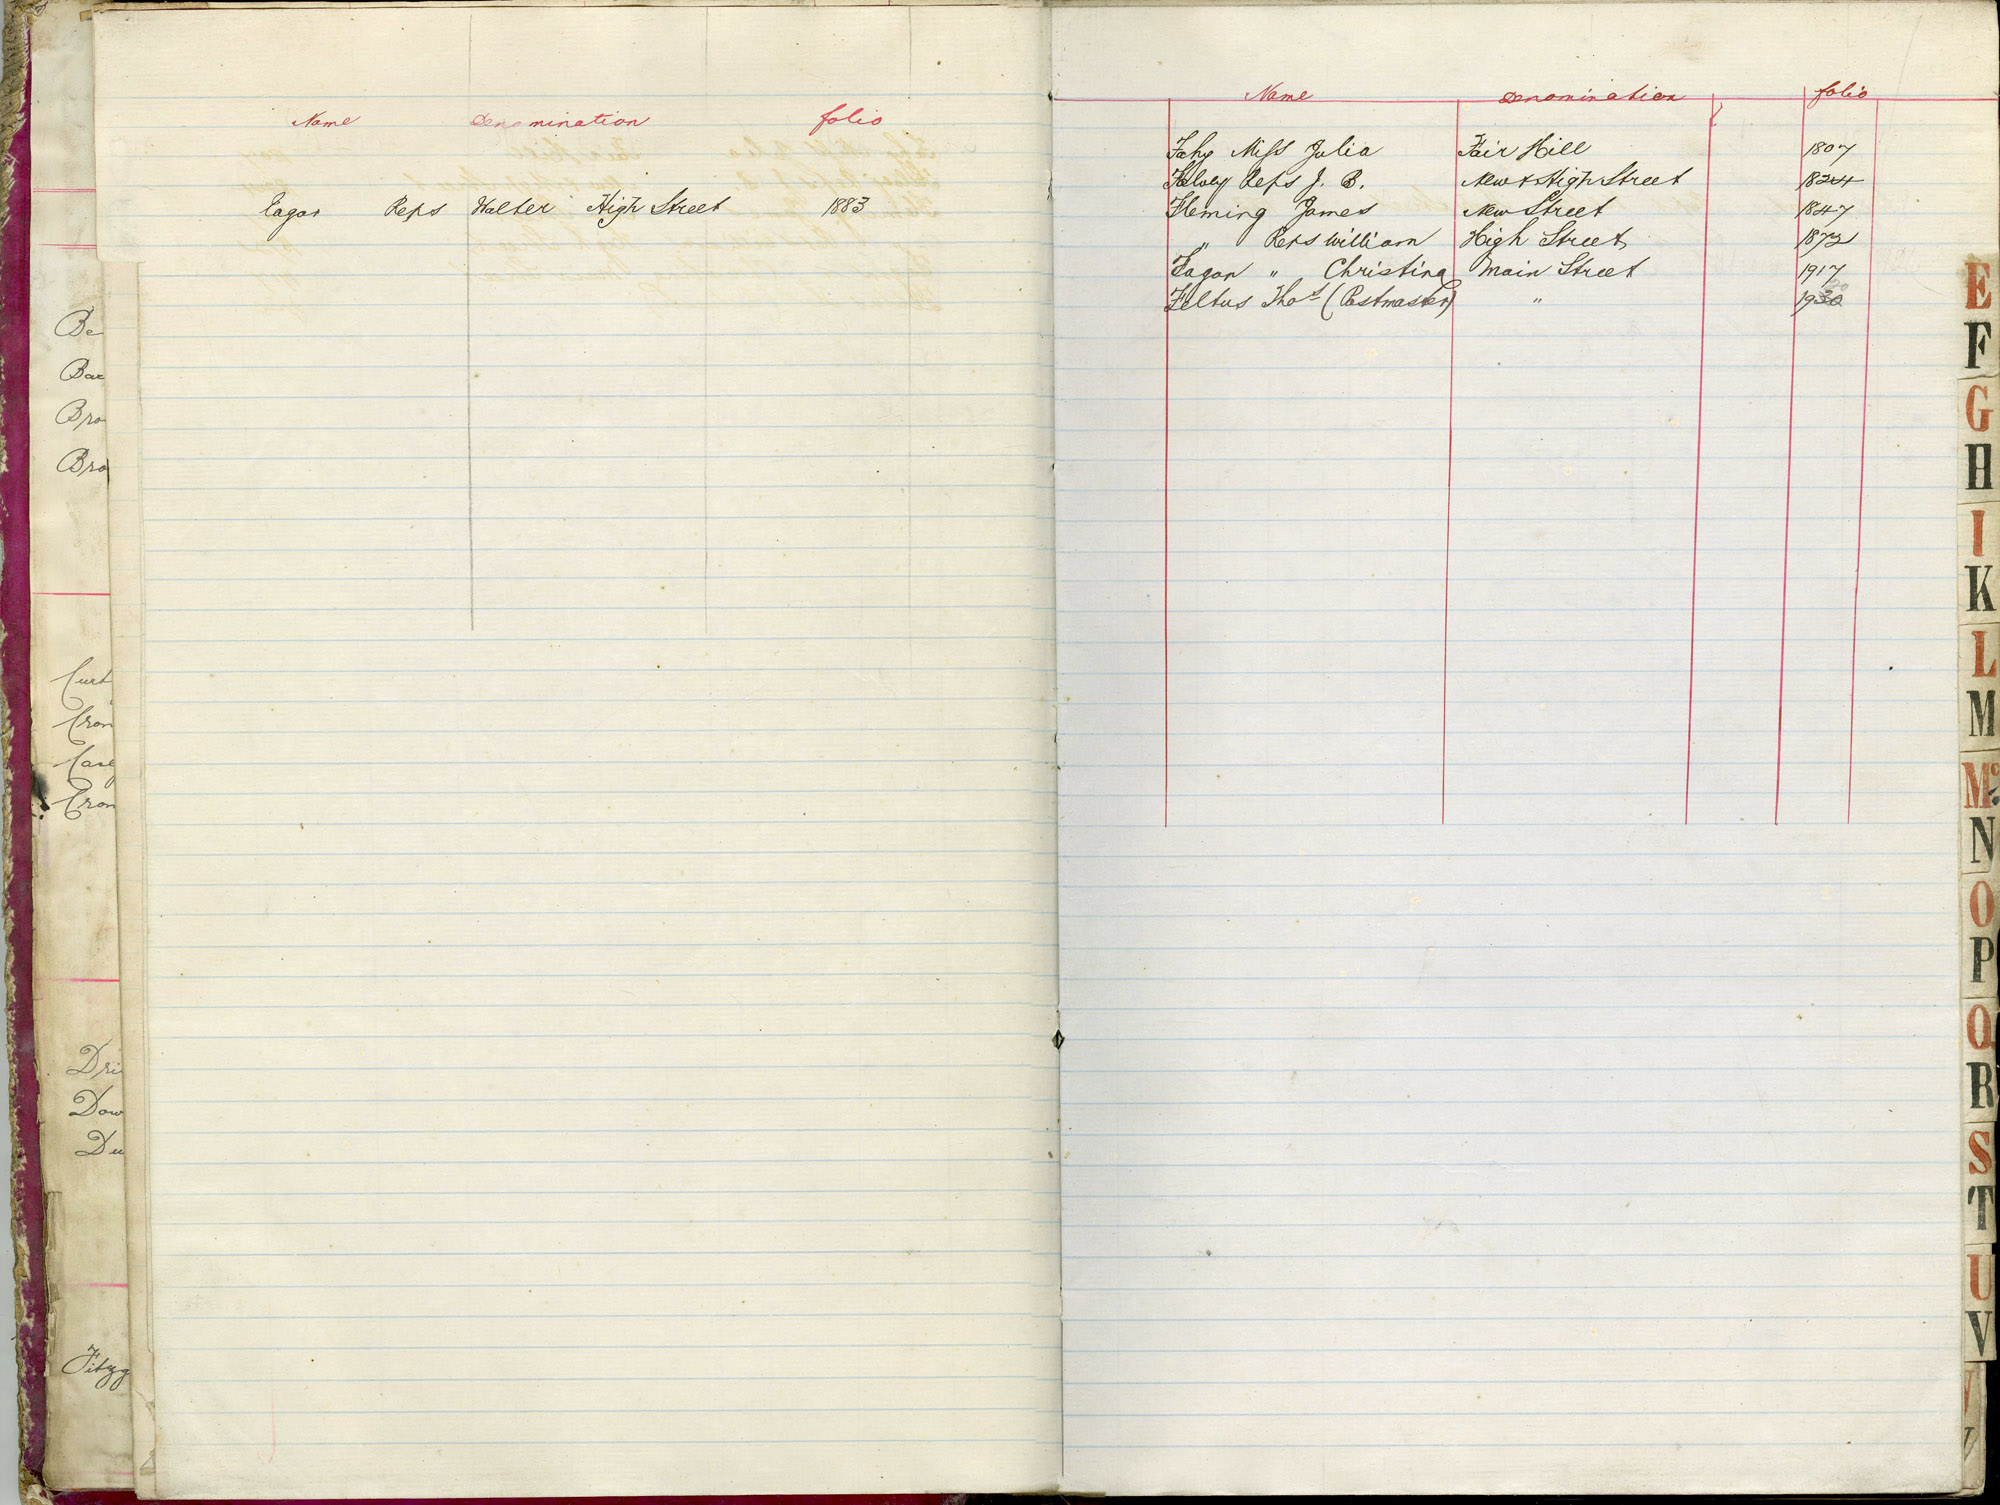 Name Denomination folio
Eagar Reps Walter High Street 1883
Be
Bar
Bro
Bro
Curt
Cron
Case
Cron
Dri
Dow
Du
Fitzg
Name Denomination folio
Fahy Miss Julia Fair Hill 1807
Reps J. B. New & High Street 1824
Fleming James New Street 1847
" Reps William High Street 1872
Fagan " Christina Main Street 1917
Feltus Thos (Postmaster) " 1930
E
F
G
H
I
K
L
M
Mc
N
O
P
Q
R
S
T
U
V